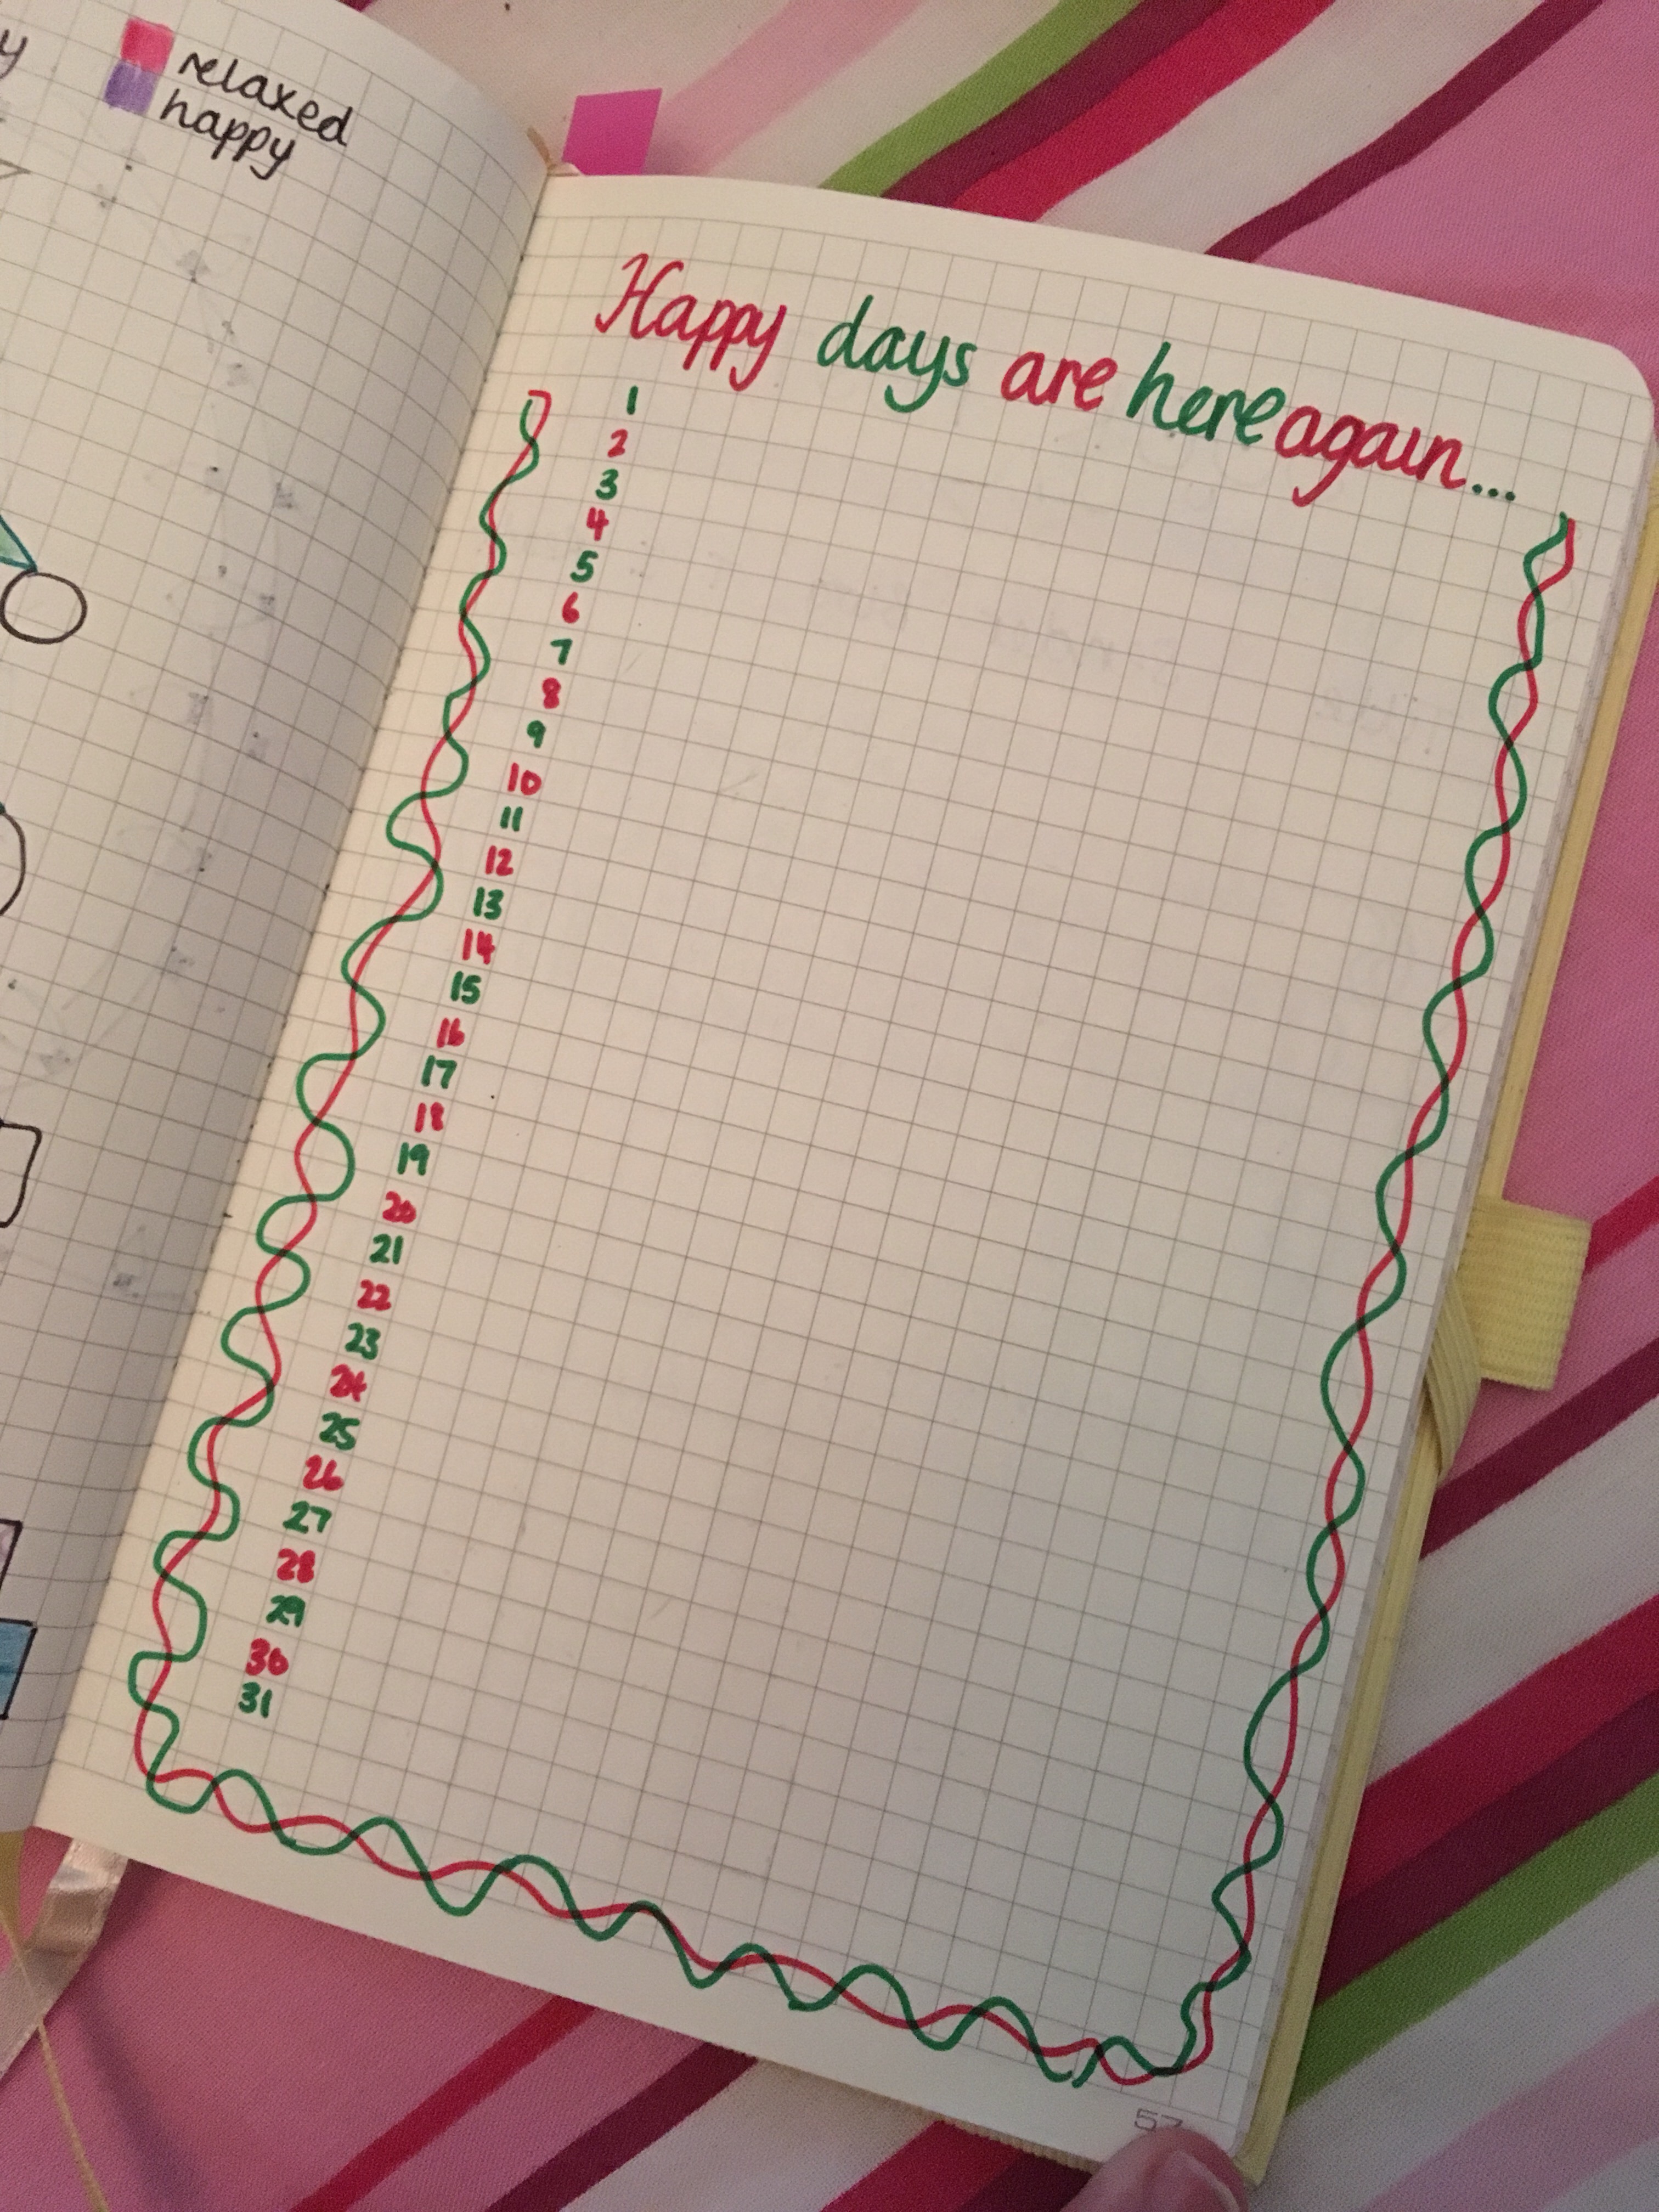 y
relaxed
happy
Happy days are here again...
1
2
3
4
5
6
7
8
9
10
11
12
13
14
15
16
17
18
19
20
21
22
23
24
25
26
27
28
29
30
31
57